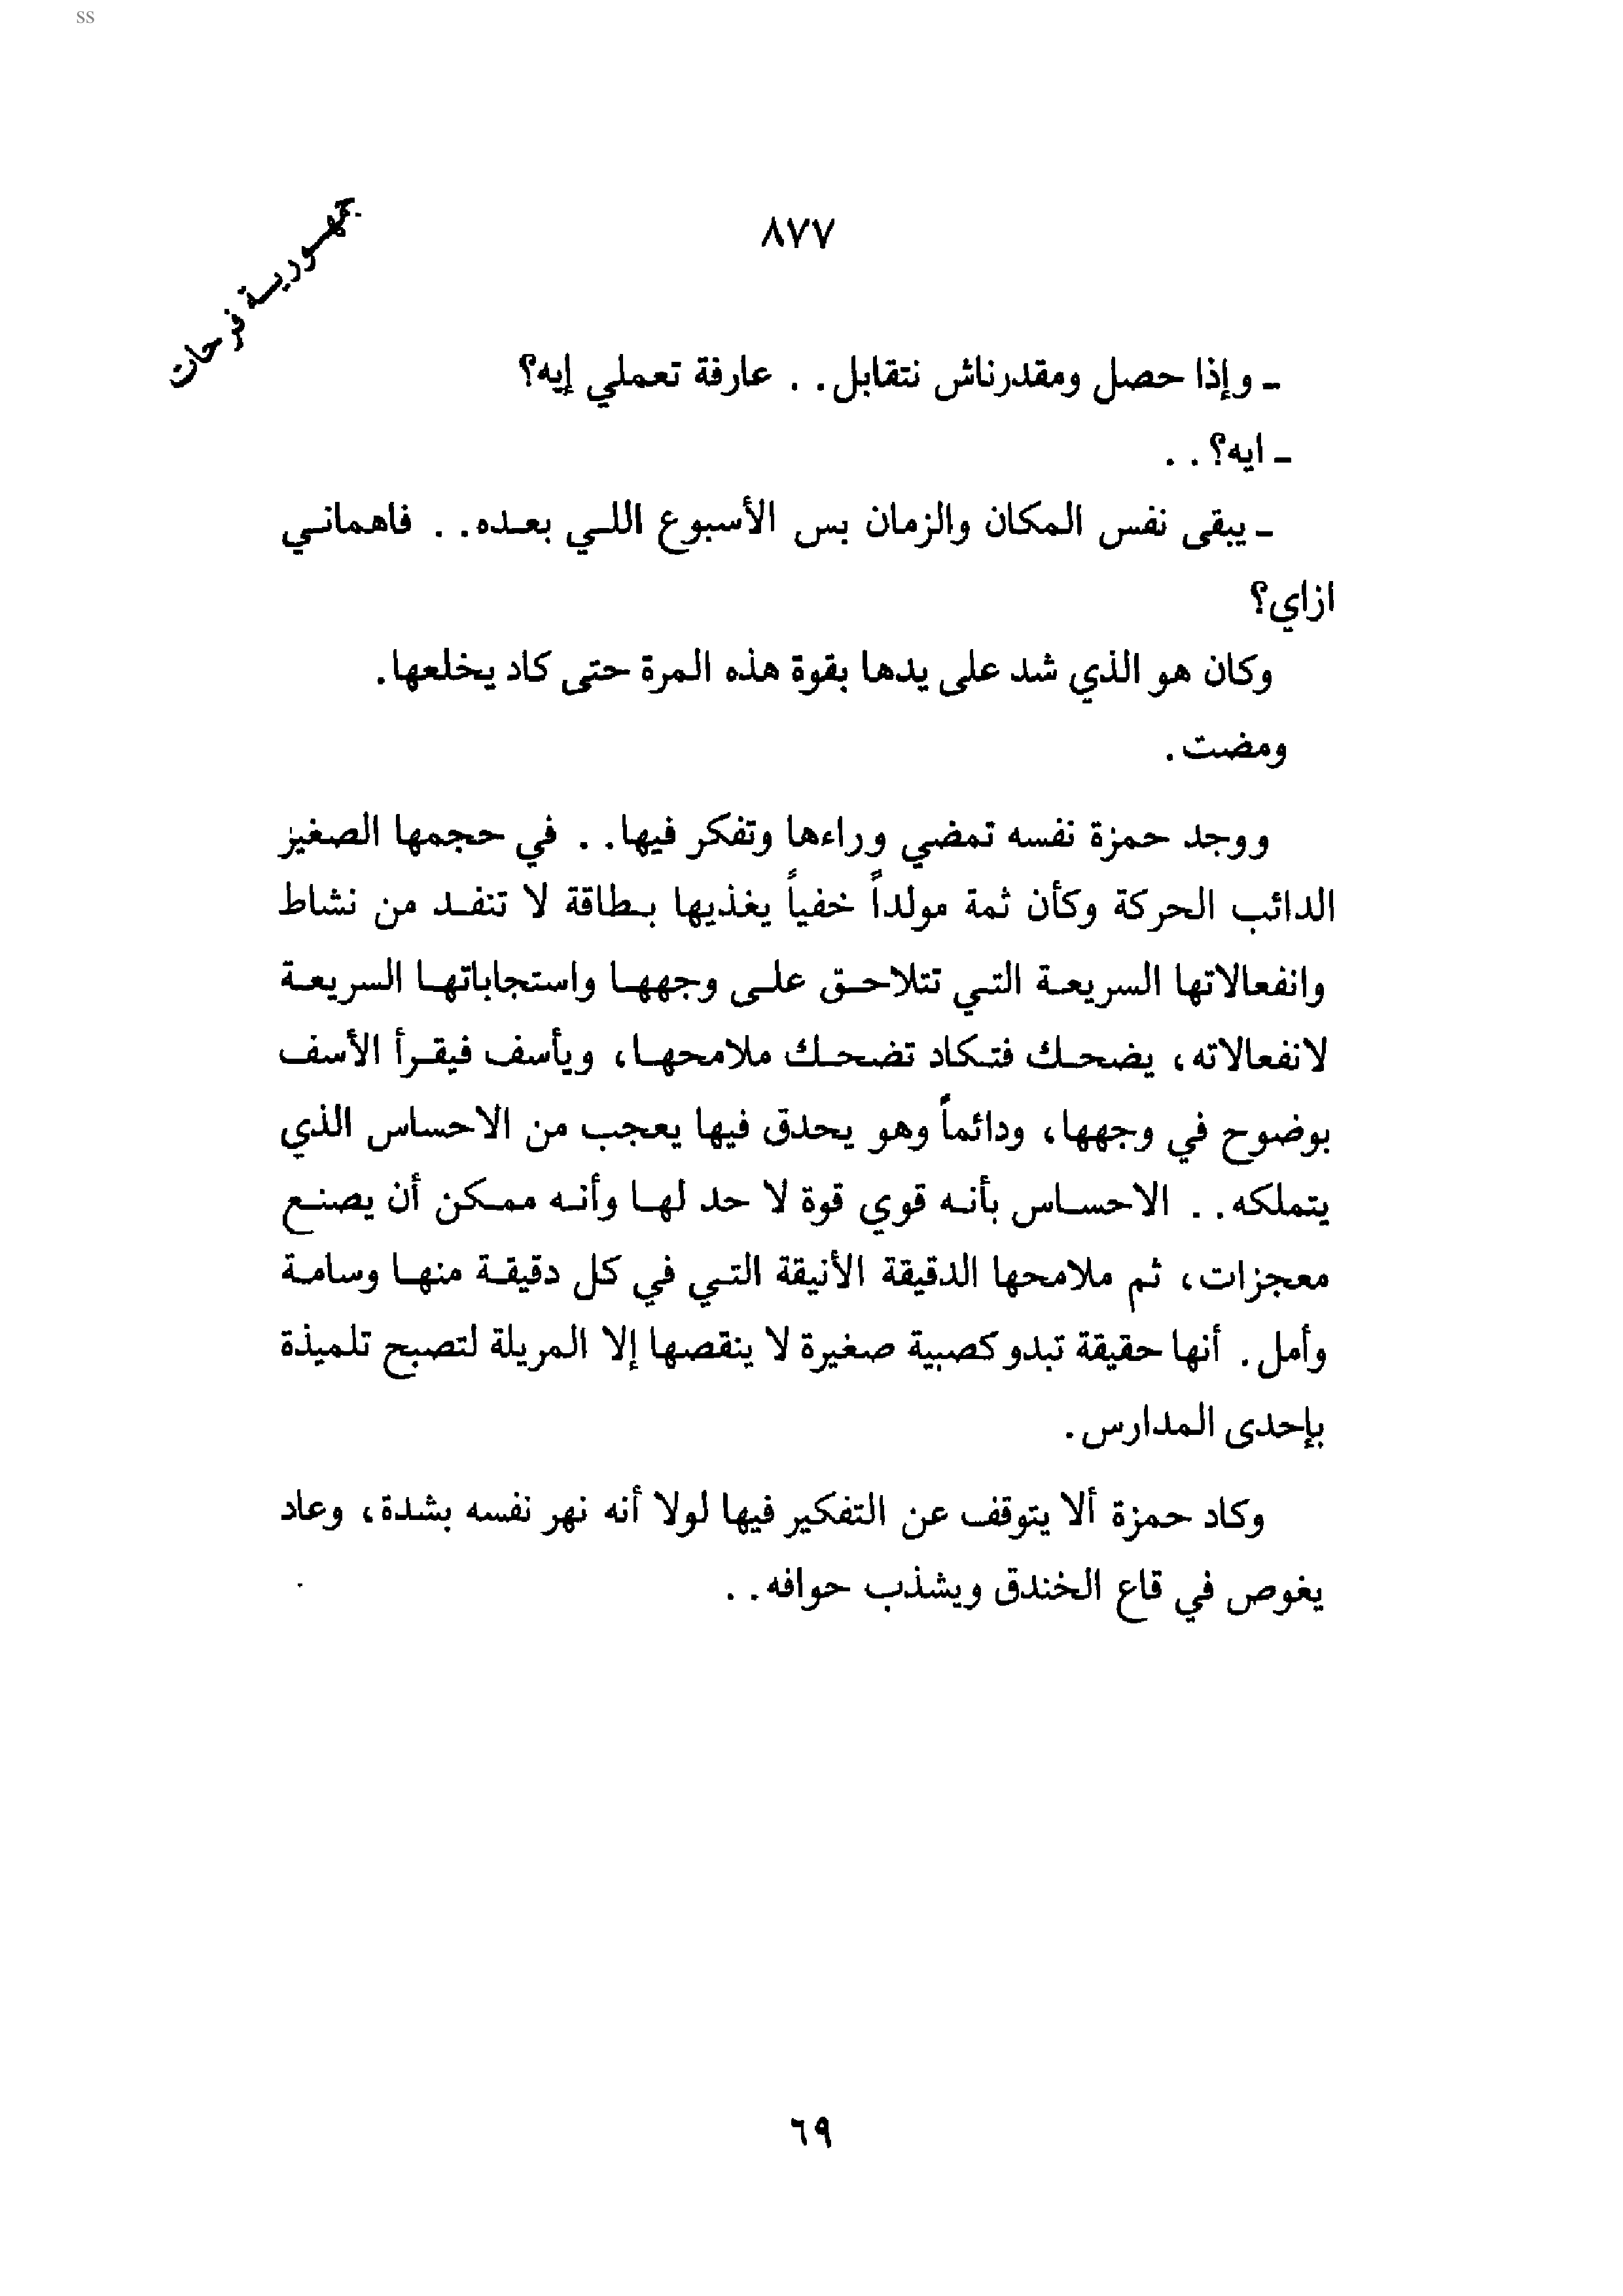 ss
جمهورية فرحات
٨٧٧
ـ وإذا حصل ومقدرناش نتقابل . . عارفة تعملي إيه؟
ـ ايه؟ . .
ـ يبقى نفس المكان والزمان بس الأسبوع اللي بعده . . فاهماني
ازاي؟
وكان هو الذي شد على يدها بقوة هذه المرة حتى كاد يخلعها .
ومضت .
ووجد حمزة نفسه تمضي وراءها وتفكر فيها . . في حجمها الصغير
الدائب الحركة وكأن ثمة مولداً خفياً يغذيها بطاقة لا تنفد من نشاط
وانفعالاتها السريعة التي تتلاحق على وجهها واستجاباتها السريعة
لانفعالاته ، يضحك فتكاد تضحك ملامحها ، ويأسف فيقرأ الأسف
بوضوح في وجهها ، ودائماً وهو يحدق فيها يعجب من الاحساس الذي
يتملكه . . الاحساس بأنه قوي قوة لا حد لها وأنه ممكن أن يصنع
معجزات ، ثم ملامحها الدقيقة الأنيقة التي في كل دقيقة منها وسامة
وأمل . أنها حقيقة تبدو كصبية صغيرة لا ينقصها إلا المريلة لتصبح تلميذة
بإحدى المدارس .
وكاد حمزة ألا يتوقف عن التفكير فيها لولا أنه نهر نفسه بشدة ، وعاد
يغوص في قاع الخندق ويشذب حوافه . .
٦٩